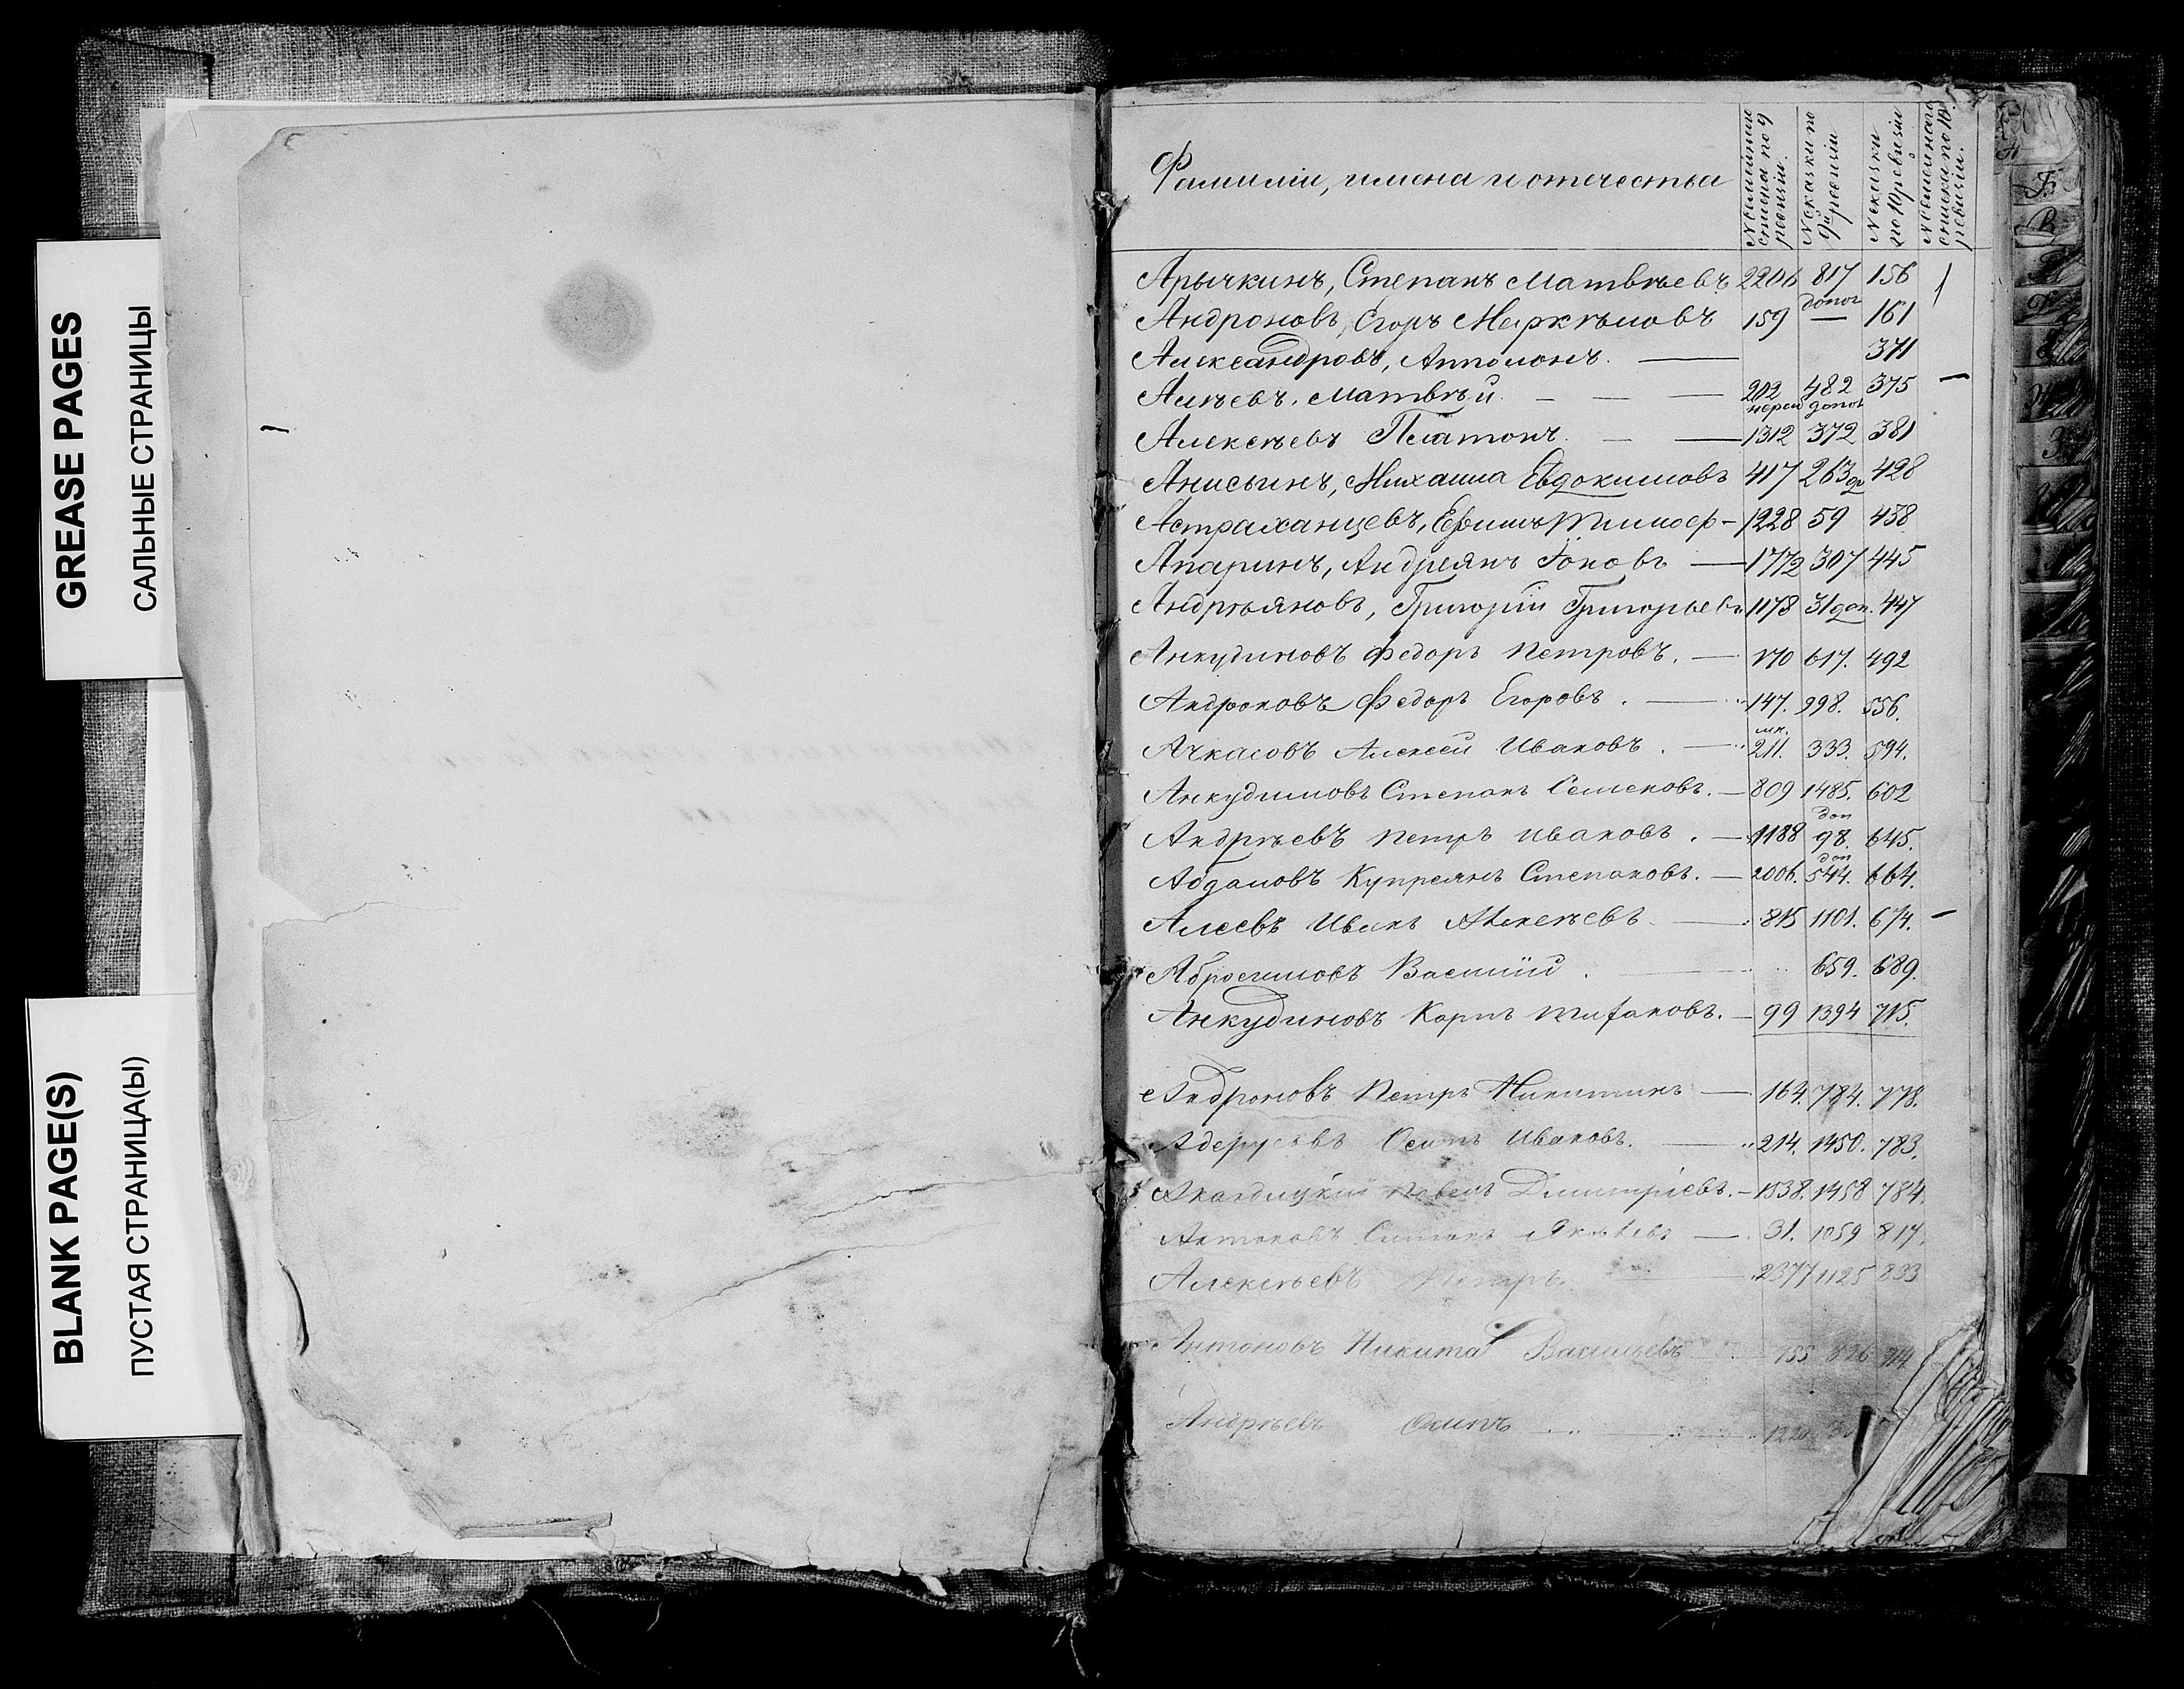 GREASE PAGES
САЛЬНЫЕ СТРАНИЦЫ
BLANK PAGE(S)
ПУСТАЯ СТРАНИЦА(Ы)
Фамиліи, имена и отчества
№ сказки по 9й ревизіи
№ сказки по 10 ревизіи
Арычкинъ, Степанъ Матвѣевъ 2206 817 156
Андроновъ, Егоръ Меркѣловъ 159 допол — 161
Александровъ, Апполонъ. — 371
Алѣевъ. Матвѣй. — — — 202 482 375 —
Алексѣевъ Платонъ. — — 1312 допол 372 381
Анисьинъ, Михаила Евдокимовъ 417 263 до 428
Астраханцевъ, Ефимъ Тимоф - 1228 59 438
Апаринъ, Андреянъ Іоновъ — 1772 307 445
Андрѣяновъ, Григорій Григорьевъ 1178 31 доп. 447
Анкудиновъ Федоръ Петровъ. — 170 617. 492
Андроновъ Федоръ Егоровъ. — 147. 998. 556.
Ачкасовъ Алексей Ивановъ. — 211. 333. 594.
Анкудимовъ Степанъ Семеновъ. — 809 1485. 602
Андрѣевъ Петръ Ивановъ. — 1188 доп 98. 645.
Абдамовъ Купреянъ Степановъ. — 2006. доп 544. 664.
Алеевъ Иванъ Алексѣевъ — 815 1101. 674. —
Абросимовъ Василій. 659. 689.
Анкудиновъ Карпъ Тифановъ. — 99 1394 715.
Андроновъ Петръ Никитинъ — 164. 784. 778.
Осипъ Ивановъ. — 214. 1450. 783.
Павелъ Дмитріевъ. — 1538. 1458 784.
Антоновъ — 31. 1059 817.
Алексѣевъ Петръ. 2377 1125 833
Антоновъ Никита Васильевъ 755
Андрѣевъ Осипъ